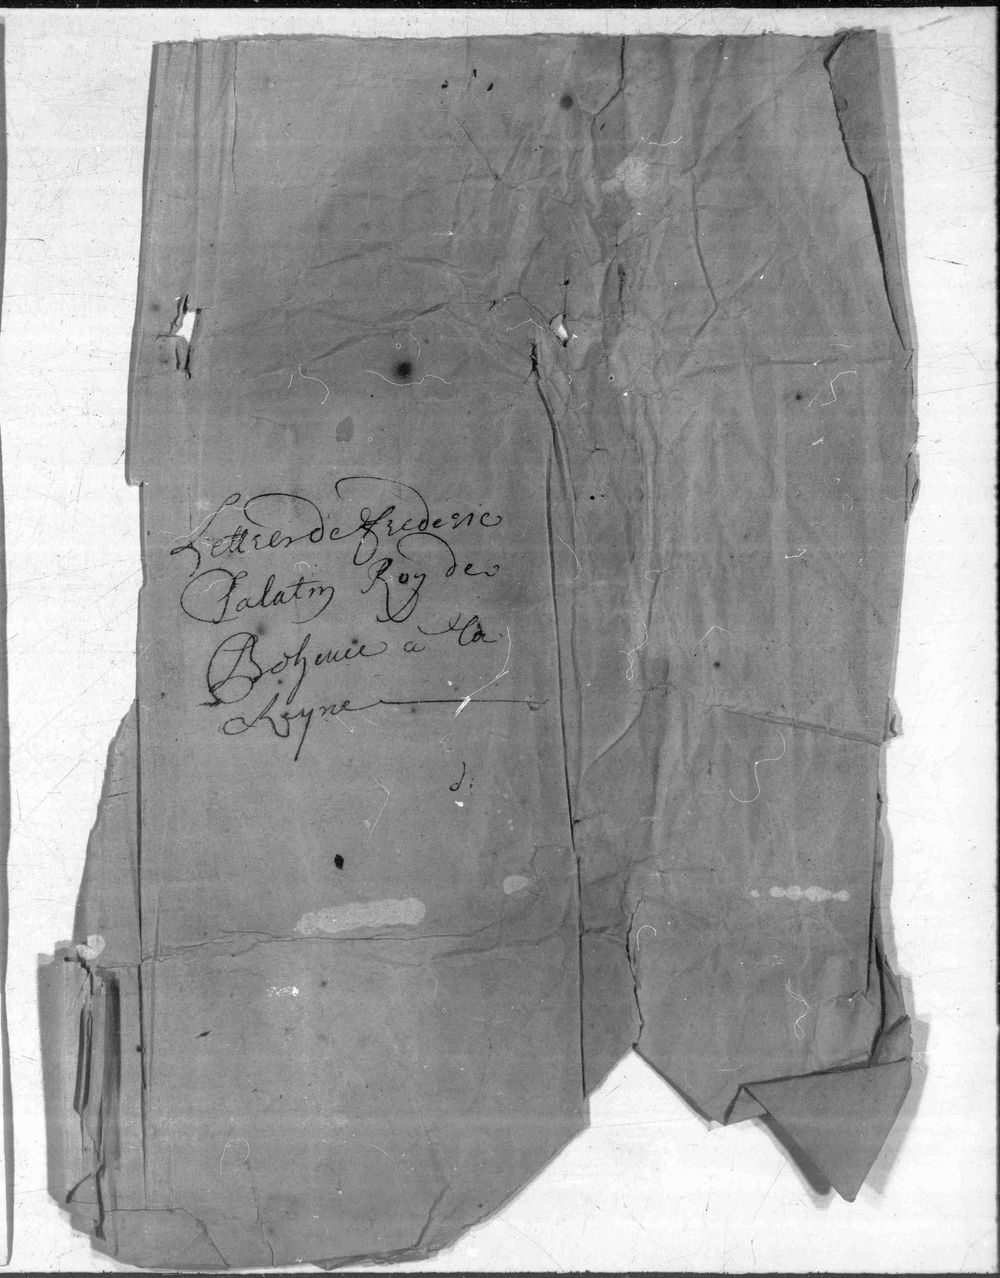 Lettres de Frederic
Palatin Roy de
Boheme a la
Reyne
d: